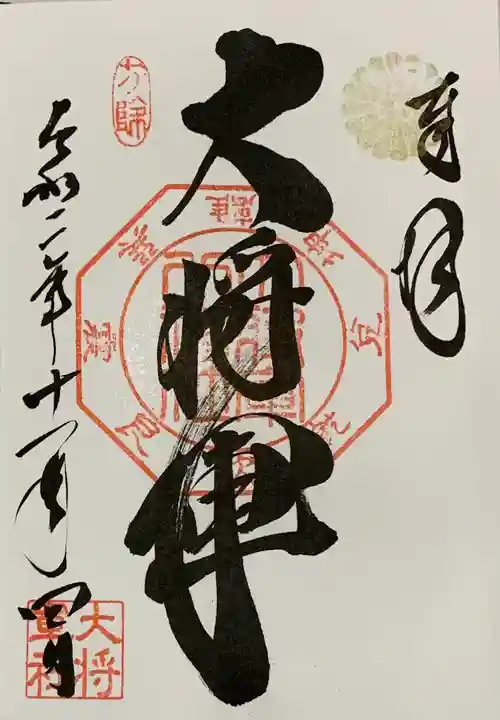 奉拝
大将軍
令和二年十一月四日
方除
大将
軍社